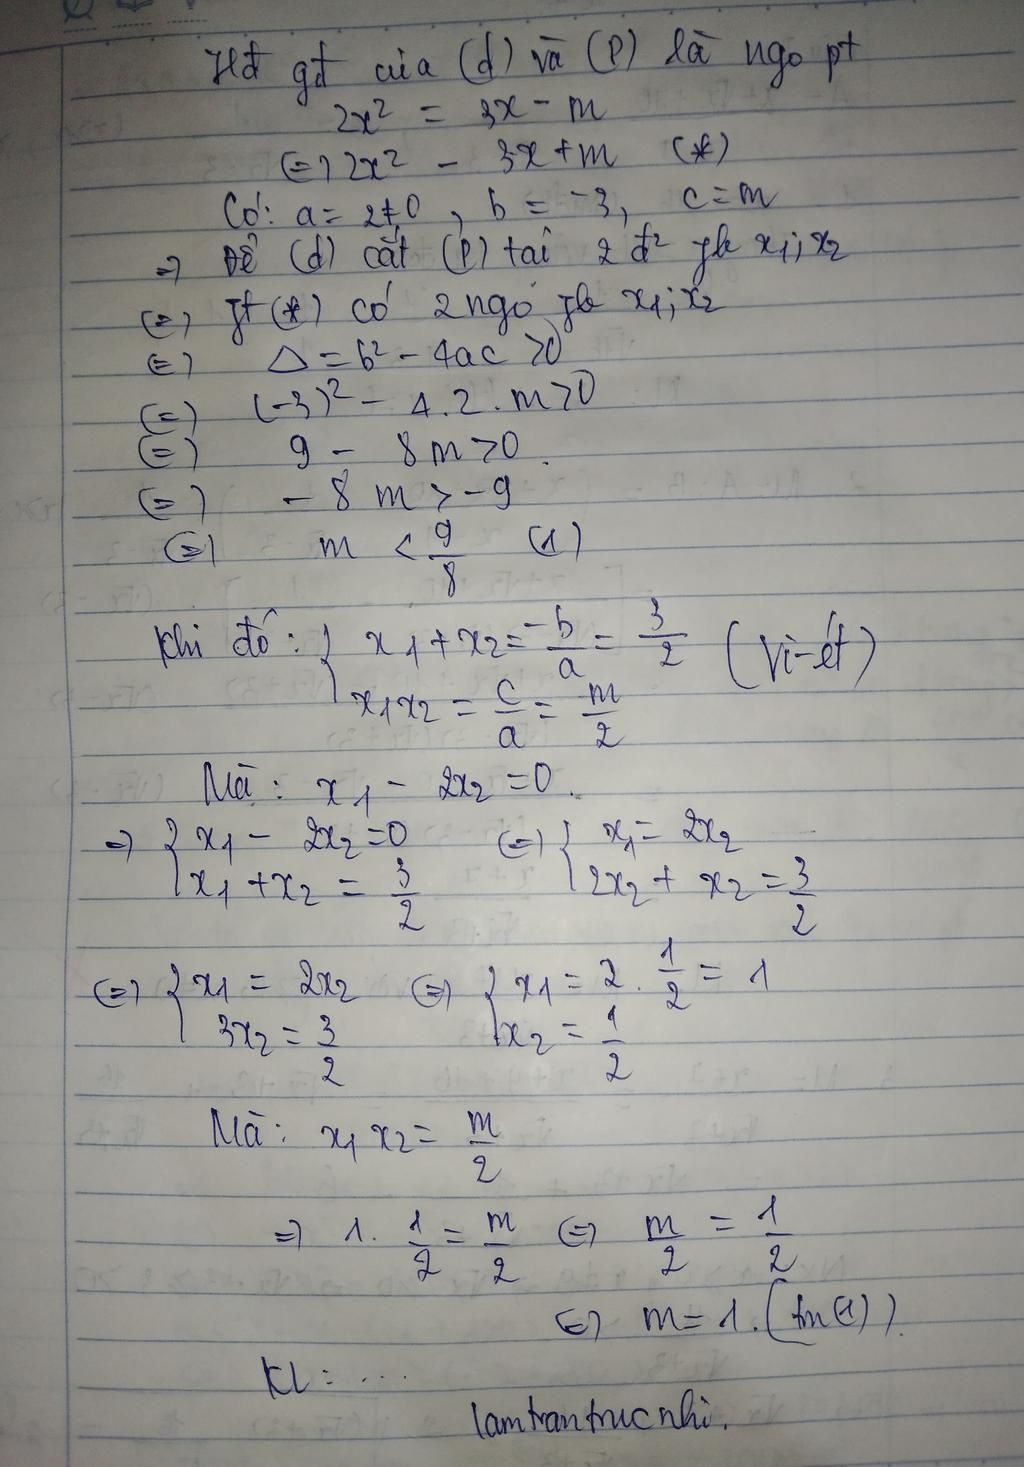 Hđ gđ của (d) và (P) là ngo pt
2x² = 3x - m
(=) 2x² - 3x + m (*)
Có: a = 2 ≠ 0, b = -3, c = m
=> Để (d) cắt (P) tại 2 đ² pb x₁; x₂
(=) pt (*) có 2 ngo pb x₁; x₂
(=) Δ = b² - 4ac > 0
(=) (-3)² - 4.2.m > 0
(=) 9 - 8m > 0.
(=) - 8m > -9
(=) m < 9/8 (1)
Khi đó: { x₁ + x₂ = -b/a = 3/2 (Vi-ét)
x₁x₂ = c/a = m/2
Mà: x₁ - 2x₂ = 0.
=> { x₁ - 2x₂ = 0 (=) { x₁ = 2x₂
x₁ + x₂ = 3/2 2x₂ + x₂ = 3/2
(=) { x₁ = 2x₂ (=) { x₁ = 2. 1/2 = 1
3x₂ = 3/2 x₂ = 1/2
Mà: x₁x₂ = m/2
=> 1. 1/2 = m/2 (=) m/2 = 1/2
(=) m = 1. (tm (1)).
KL: ...
lamtrantrucnhi.